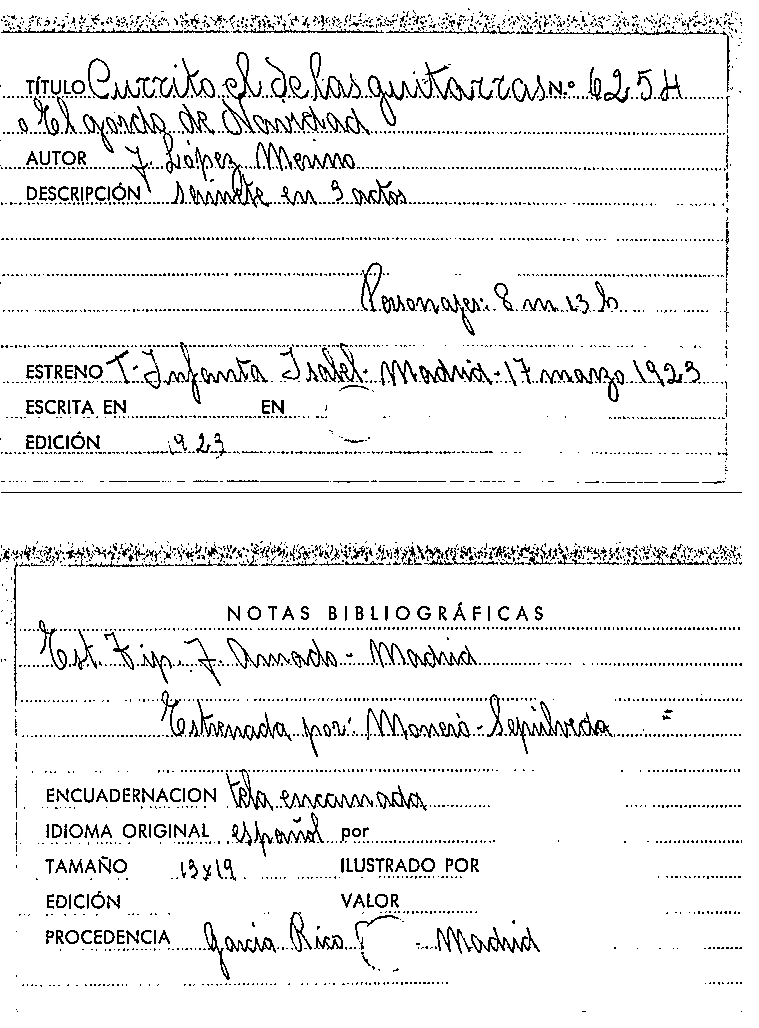 TÍTULO Currito el de las guitarras N.º 6254
o El gordo de Navidad
AUTOR J. López Merino
DESCRIPCIÓN sainete en 3 actos
Personajes: 8 m 13 h
ESTRENO T. Infanta Isabel - Madrid - 17 marzo 1923
ESCRITA EN EN
EDICIÓN 1923
NOTAS BIBLIOGRÁFICAS
Est. Tip. J. Amado - Madrid
Estrenada por: Moneró - Sepúlveda
ENCUADERNACION tela encarnada
IDIOMA ORIGINAL español por
TAMAÑO 13x19 ILUSTRADO POR
EDICIÓN VALOR
PROCEDENCIA García Rico - Madrid